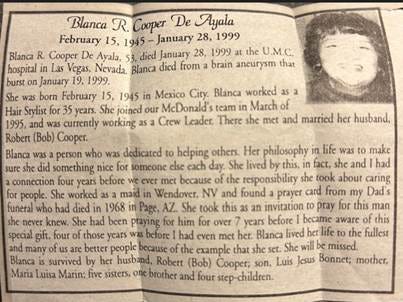 Blanca R. Cooper De Ayala
February 15, 1945 – January 28, 1999
Blanca R. Cooper De Ayala, 53, died January 28, 1999 at the U.M.C.
hospital in Las Vegas, Nevada. Blanca died from a brain aneurysm that
burst on January 19, 1999.
She was born February 15, 1945 in Mexico City. Blanca worked as a
Hair Stylist for 35 years. She joined our McDonald's team in March of
1995, and was currently working as a Crew Leader. There she met and married her husband,
Robert (Bob) Cooper.
Blanca was a person who was dedicated to helping others. Her philosophy in life was to make
sure she did something nice for someone else each day. She lived by this, in fact, she and I had
a connection four years before we ever met because of the responsibility she took about caring
for people. She worked as a maid in Wendover, NV and found a prayer card from my Dad's
funeral who had died in 1968 in Page, AZ. She took this as an invitation to pray for this man
she never knew. She had been praying for him for over 7 years before I became aware of this
special gift, four of those years was before I had even met her. Blanca lived her life to the fullest
and many of us are better people because of the example that she set. She will be missed.
Blanca is survived by her husband, Robert (Bob) Cooper; son, Luis Jesus Bonnet; mother,
Maria Luisa Marin; five sisters, one brother and four step-children.